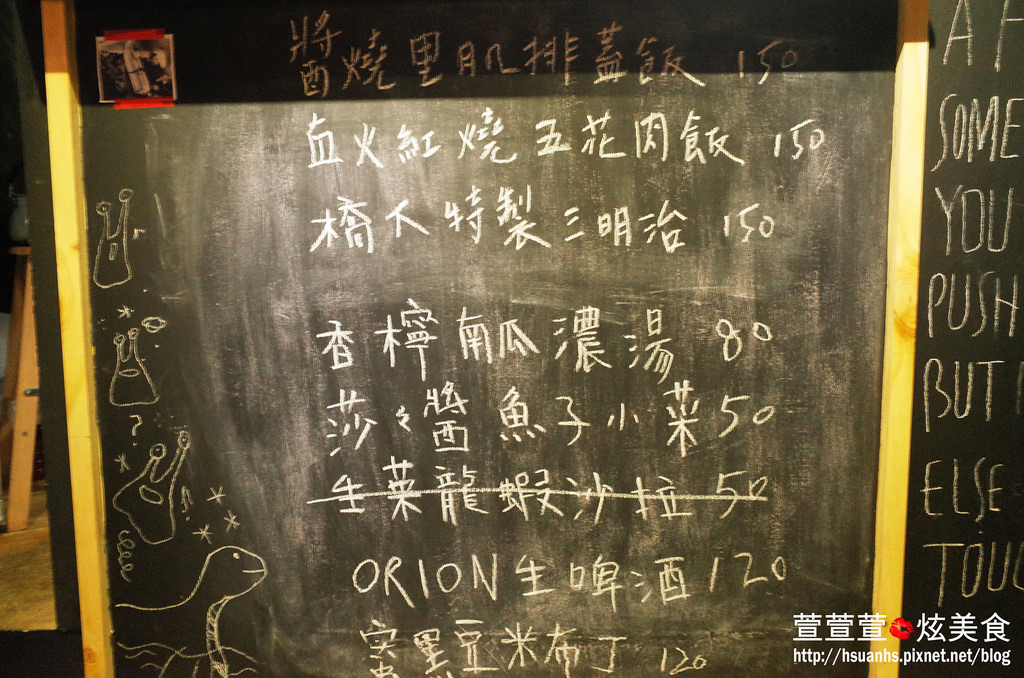 醬燒里肌排蓋飯 150
直火紅燒五花肉飯 150
橋下特製三明治 150
香檸南瓜濃湯 80
莎莎醬魚子小菜 50
生菜龍蝦沙拉 50
ORION生啤酒 120
蜜黑豆米布丁 120
A F
SOME
YOU
PUSH
BUT
ELSE
TOUC
?
萱萱萱 炫美食
http://hsuanhs.pixnet.net/blog